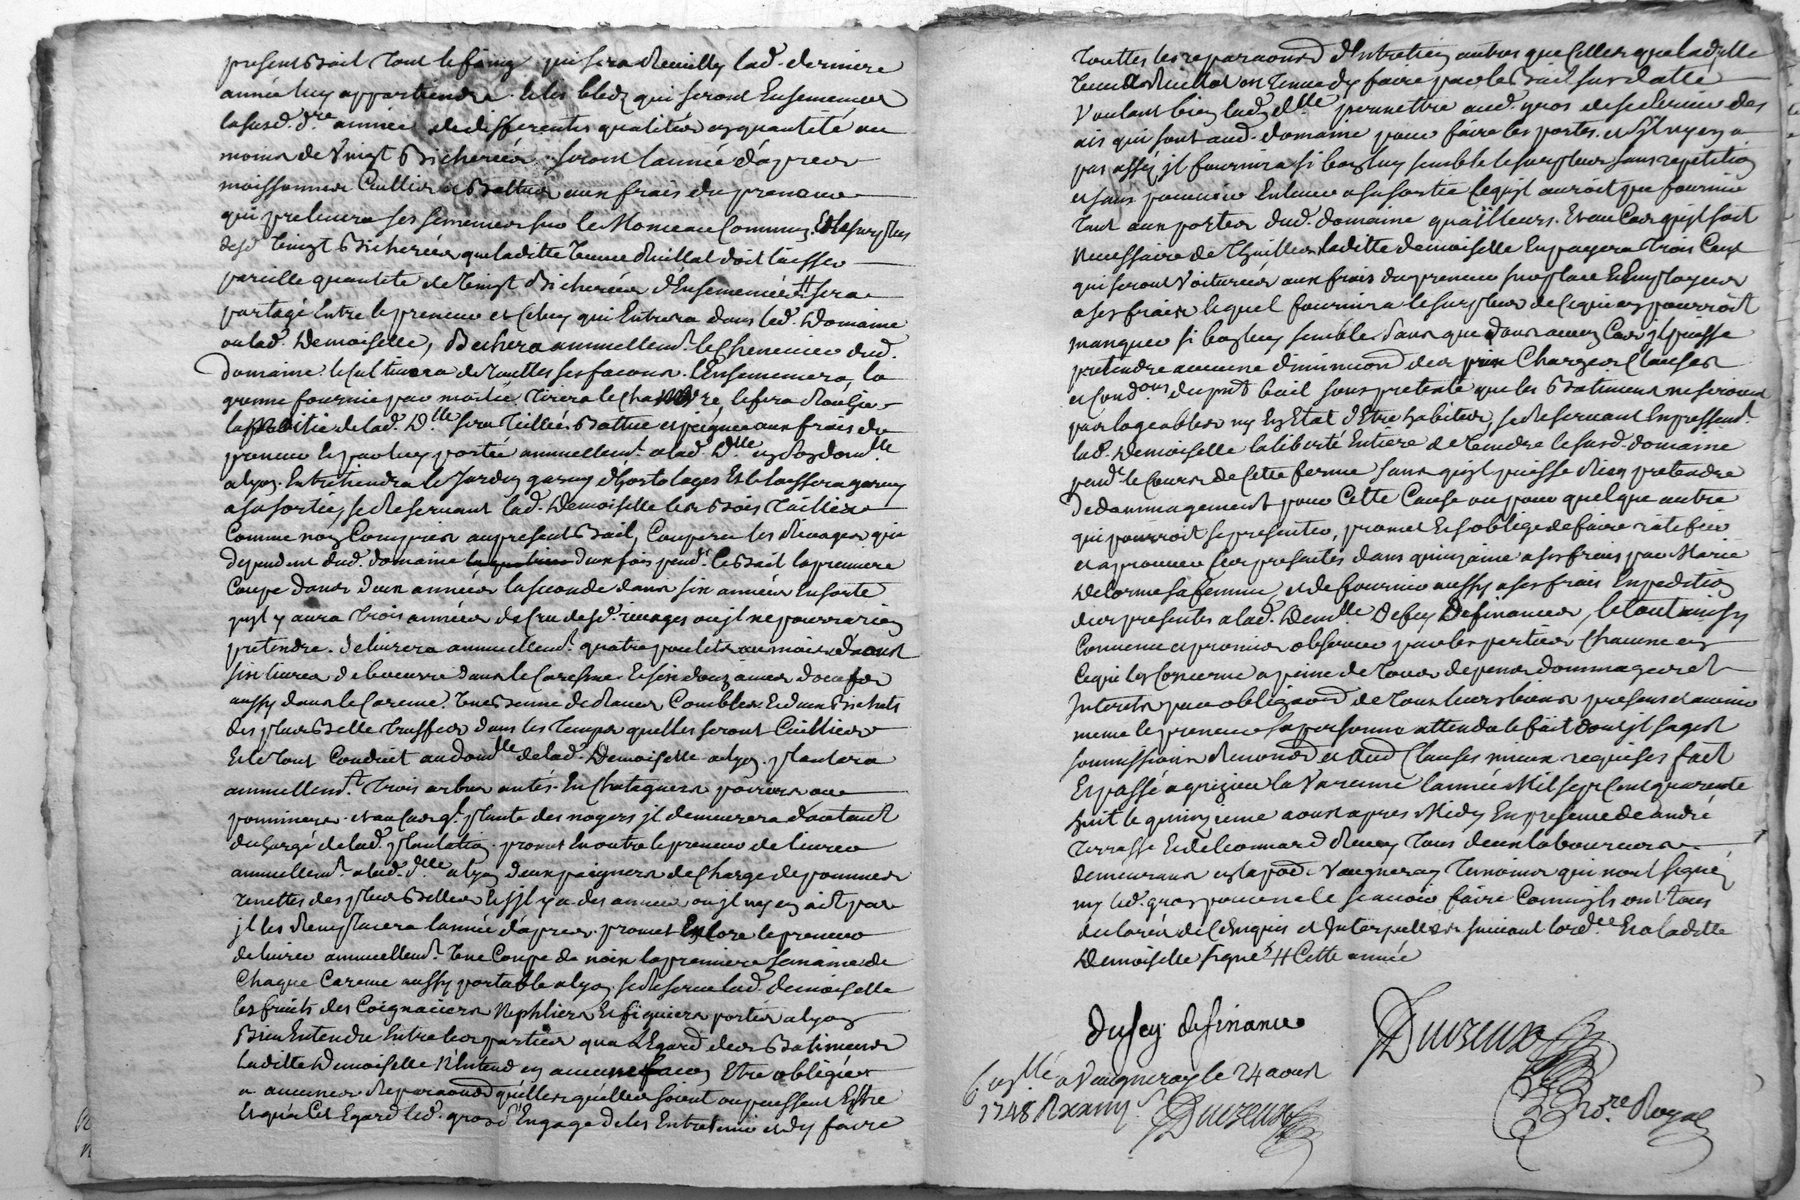 present Bail tout le foing qui sera Reueilly lad. derniere
année luy appartiendra. & les bledz qui seront Ensemencer
la susd. dre année de differentes qualitées en quantité au
moins de Vingt Bicherées seront l'année d'apres
moissonner Cuillier & Battus aux frais du preneur
qui prelevera ses semences sur le Monceau Commun Et le surplus
desd. Vingt Bicherées que laditte veuve Ruillat doit laisser
pareille quantité de Vingt Bicherées d'Ensemencées # sera
partagé Entre le preneur et Celuy qui Entrera dans led. Domaine
ou lad. Demoiselle, Bechera annuellemt. le Cheneuier dud.
Domaine le Cultivera de touttes ses facons. l'Ensemencera, la
graine fournie par moitié. Tirera le Chanvre le fera Rouïr
la Moitié de lad. Dlle sera Teillée Battue et peignée aux frais du
preneur & par luy portée annuellemt. a lad. Dlle en son domlle
a lyon. Entretiendra le Jardin garny d'hortolages & le laissera garny
a sa sortie, se Reservant lad. Demoiselle les Bois Taillier
Comme non Compris au present Bail, Coupera les Rivages qui
dependent dud. domaine deux fois pendt. le Bail la premiere
Coupe dans deux années la seconde dans six années En sorte
quil y aura Trois années de Cru desd. rivages ou il ne pourra rien
pretendre. Delivrera annuellemt. quatre poulets au mois d'aoust
six livres de beurre dans le Caresme & six douzaines d'oeufs
aussy dans le Careme. Une Benne de Raves Combles. & deux Bichets
des plus Belle Truffes dans les Temps quelles seront Cuillies
Et le Tout Conduit au domlle de lad. Demoiselle a lyon. plantera
annuellemt. Trois arbres antés. En Chataguers poiriers ou
pommiers. et au Cas ql. plante des noyers il demeurera d'autant
dechargé de lad. plantation. promet En outre le preneur de livrer
annuellemt. a lad. dlle a lyon deux paigners de Charge de pommes
renettes des plus Belles & s'il y a des années ou il ny en ait pas
il les Remplacera l'année d'apres. promet Encore le preneur
de livrer annuellemt. Une Coupe de noix la premiere semaine de
Chaque Careme aussy portable a lyon. se Reserve lad. demoiselle
les fruits des Coignaciers Nephliers & figuiers portés a lyon
Bien Entendu Entre les parties qua l'Egard des Batimens
Laditte Demoiselle N'Entend en aucune facon Etre obligée
a aucunes Reparaons qu'elles quelles soient ou puissent Estre
Et qu'a Cet Egard led. gros s'Engage de les Entretenir et d'y faire
Touttes les reparaons d'Entretien autres que Celles que laditte
Veuve Ruillat est Tenue d'y faire par le Bail susdatté
Voulant bien lad. dlle permettre aud. gros de se servir des
ais qui sont aud. domaine pour faire les portes. et s'il ny en a
pas assés, il fournira si bon luy semble le surplus sans repetition
et sans pouvoir Enlever a sa sortie Ce quil auroit peu fournir
Tant aux portes dud. domaine qu'ailleurs. Et au Cas quil soit
Necessaire de Thuilles laditte demoiselle En payera Trois Cent
qui seront Voiturées aux frais du preneur sur place & Employées
a ses frais lequel fournira le surplus de Ce qui en pourroit
manquer si bon luy semble. Sans que dans aucun Cas il puisse
pretendre aucune diminuon des prix Charges Clauses
et Condons du pnt bail sous pretexte que les Batimens ne seroient
pas logeables ny En Etat d'Etre habités, se Reservant Expressemt.
lad. Demoiselle la liberté Entiere de Vendre le susd. domaine
pendt. le Cours de Cette ferme sans quil puisse Rien pretendre
Dedommagement pour Cette Cause ou pour quelque autre
qui pourroit se presenter, promet & s'oblige de faire ratifier
et aprouver Ces presentes dans quinzaine a ses frais par Marie
Delorme sa femme, et de fournir aussy a ses frais Expedition
des presentes a lad. Demlle Defey Definances, le tout ainsy
Convenu et promis observer par les parties Chacune en
Ce qui les Concerne a peine de Tous depens dommages et
Interets par obligaon de Tous leurs biens presens & avenir
meme le preneur sa personne attendu le fait dont il sagit
soumissions Renonons et aud Clauses mieux requises fait
Et passé a grezieu la Varenne l'année Mil sept Cent quarente
huit le quinzieme aoust apres Midy En presence de andré
Terrasse & de leonnard Reney Tous deux laboureurs
demeurans en la pard. Vaugneray Temoins qui n'ont signé
ny led. gros pour ne le scavoir faire Comm ils ont Tous
declarés de Ce Enquis et Interpellés suivant lordce. Et a laditte
Demoiselle signé # Cette année
Dufey definance
Duvreux
Conllé a Vaugneray le 24 aoust
1748 R
Duvreux
Nore Royal